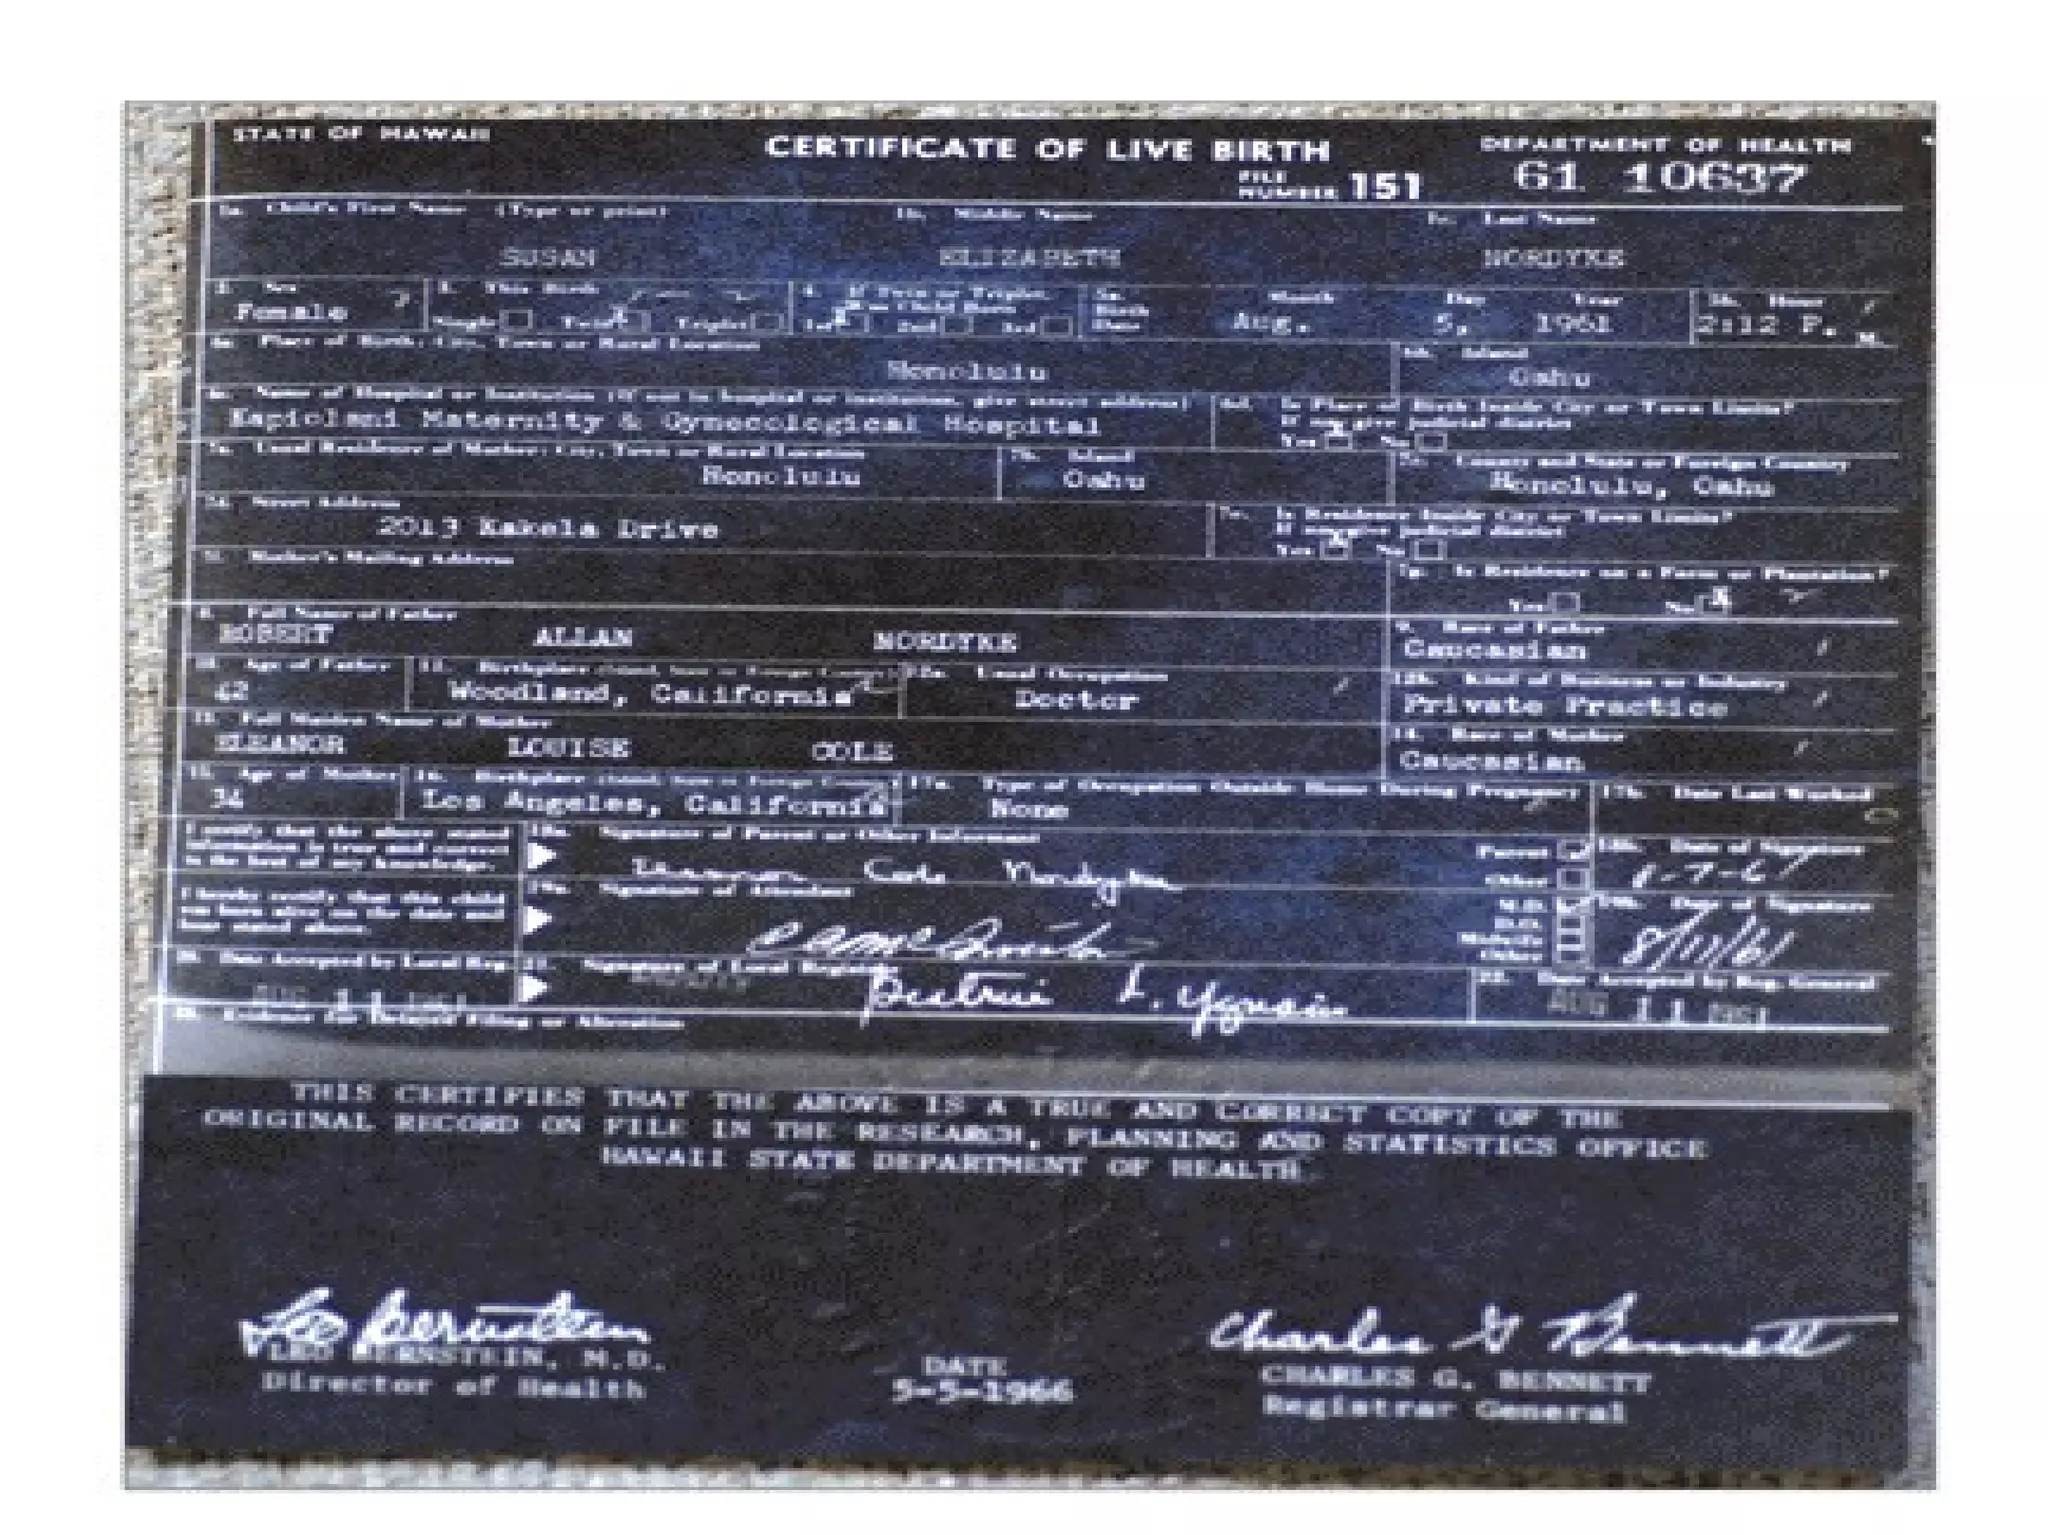 STATE OF HAWAII CERTIFICATE OF LIVE BIRTH DEPARTMENT OF HEALTH
FILE NUMBER 151 61 10637
1a. Child's First Name (Type or print) 1b. Middle Name 1c. Last Name
SUSAN ELIZABETH NORDYKE
2. Sex 3. This Birth 4. If Twin or Triplet, Was Child Born 5a. Birth Date Month Day Year 5b. Hour
Female Single Twin Triplet 1st 2nd 3rd Aug. 5, 1961 2:12 P. M.
6a. Place of Birth: City, Town or Rural Location 6b. Island
Honolulu Oahu
6c. Name of Hospital or Institution (If not in hospital or institution, give street address) 6d. Is Place of Birth Inside City or Town Limits?
If no, give judicial district
Kapiolani Maternity & Gynecological Hospital Yes No
7a. Usual Residence of Mother: City, Town or Rural Location 7b. Island 7c. County and State or Foreign Country
Honolulu Oahu Honolulu, Oahu
7d. Street Address 7e. Is Residence Inside City or Town Limits?
If no, give judicial district
2013 Kakela Drive Yes No
7f. Mother's Mailing Address 7g. Is Residence on a Farm or Plantation?
Yes No
8. Full Name of Father 9. Race of Father
ROBERT ALLAN NORDYKE Caucasian
10. Age of Father 11. Birthplace (Island, State or Foreign Country) 12a. Usual Occupation 12b. Kind of Business or Industry
42 Woodland, California Doctor Private Practice
13. Full Maiden Name of Mother 14. Race of Mother
ELEANOR LOUISE COLE Caucasian
15. Age of Mother 16. Birthplace (Island, State or Foreign Country) 17a. Type of Occupation Outside Home During Pregnancy 17b. Date Last Worked
34 Los Angeles, California None
I certify that the above stated information is true and correct to the best of my knowledge. 18a. Signature of Parent or Other Informant Parent Other 18b. Date of Signature
Cole Nordyke
I hereby certify that this child was born alive on the date and hour stated above. 19a. Signature of Attendant M.D. D.O. Midwife Other 19b. Date of Signature
8/11/61
20. Date Accepted by Local Reg. 21. Signature of Local Registrar 22. Date Accepted by Reg. General
AUG 11 1961 AUG 11 1961
23. Evidence for Delayed Filing or Alteration
THIS CERTIFIES THAT THE ABOVE IS A TRUE AND CORRECT COPY OF THE
ORIGINAL RECORD ON FILE IN THE RESEARCH, PLANNING AND STATISTICS OFFICE
HAWAII STATE DEPARTMENT OF HEALTH.
Leo Bernstein Charles G Bennett
LEO BERNSTEIN, M.D. DATE CHARLES G. BENNETT
Director of Health 5-5-1966 Registrar General